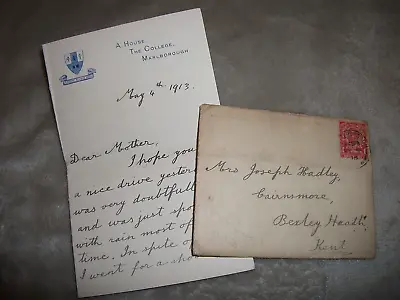 A House,
The College,
Marlborough.
May 4th 1913.
Dear Mother,
I hope you
a nice drive yester
was very doubtful
and was just spo
with rain most of
time. In spite o
I went for a sho
Mrs Joseph Hadley,
Cairnsmore,
Bexley Heath,
Kent.